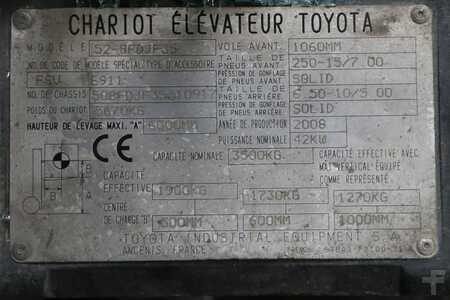 CHARIOT ÉLÉVATEUR TOYOTA
MODÈLE 52-8FDJF35 VOIE AVANT. 1060MM
NO. DE CODE DE MODÈLE SPÉCIAL TYPE D'ACCESSOIRE TAILLE DE PNEUS AVANT. 250-15/7.00
FSV E911 PRESSION DE GONFLAGE DE PNEUS AVANT. SOLID
NO. DE CHASSIS TAILLE DE PNEUS ARRIÈRE. 6.50-10/5.00
POIDS DU CHARIOT PRESSION DE GONFLAGE DE PNEUS ARRIÈRE. SOLID
HAUTEUR DE LEVAGE MAXI. "A" 6000MM ANNÉE DE PRODUCTION 2008
PUISSANCE NOMINALE 42KW
CE
CAPACITÉ NOMINALE 3500KG CAPACITÉ EFFECTIVE AVEC
MAT VERTICAL ÉQUIPÉ
COMME REPRÉSENTÉ
A B
B
CAPACITÉ
EFFECTIVE 1900KG 1730KG 1270KG
CENTRE
DE CHARGE "B" 500MM 600MM 1000MM
TOYOTA INDUSTRIAL EQUIPMENT S.A.
ANCENIS, FRANCE